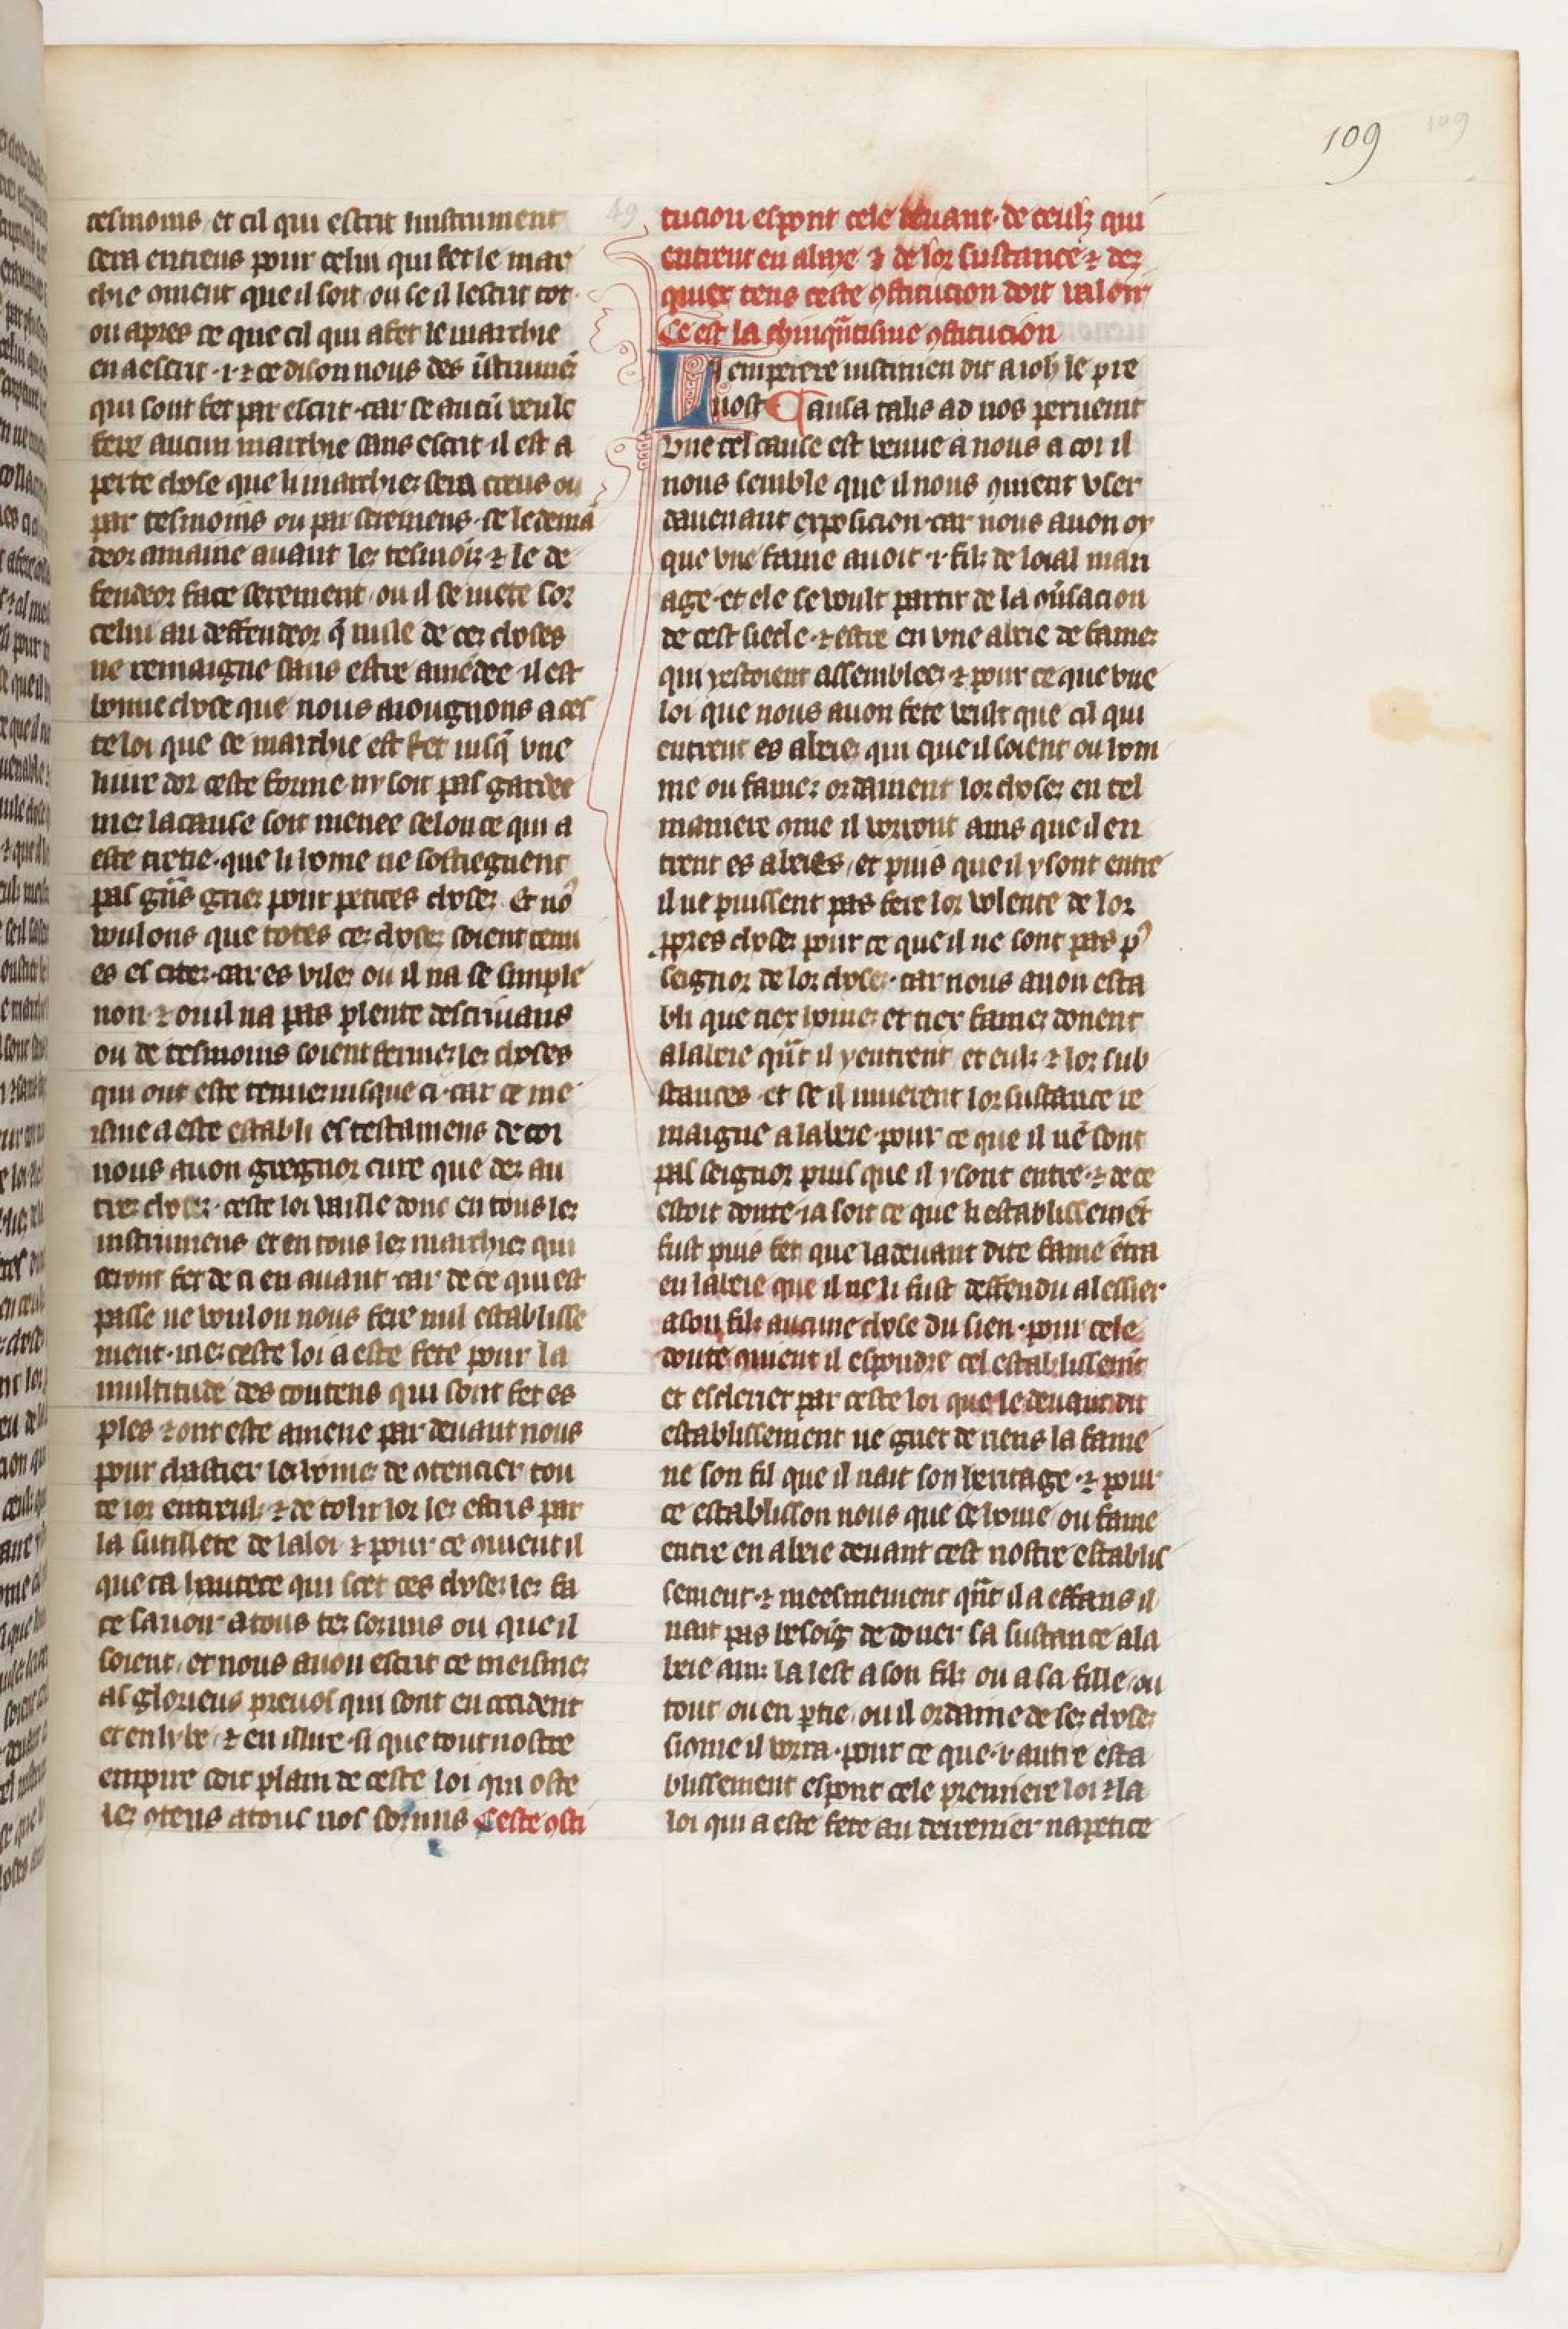 109
tesmoins. et cil qui escrit linstrument
sera entieus pour celui qui fet le mar
chie coment que il soit. ou se il lescrit tot.
ou apres ce que cil qui a fet le marchie
en a escrit .i. ⁊ ce dison nous des īstrumēs
qui sont fet par escrit. car se aucū veult
fere aucun marchie sans escrit. il est a
perte chose que li marchiez sera creus ou
par tesmoins ou par seremens. se le demā
deor amaine auant lez tesmoīz ⁊ le de
fendeor face serement. ou il se mete sor
celui au deffendeor. q̄ nule de cez choses
ne remaigne sans estre amēdee. il est
bonne chose que nous aiougnons a ces
te loi que se marchie est fet iusq̄ vne
liure dor ceste forme ni soit pas gardee
mez la cause soit menee selonc ce qui a
este tretie. que li home ne sostieguent
pas gñs griez pour petites chosez. Et no9
voulons que totes cez chosez soient tenu
es es citez. car es vilez ou il na se simple
non ⁊ ou il na pas plente descriuans
ou de tesmoins soient fermez lez choses
qui ont este tenuez iusque ci. car ce me
isme a este establi es testamens de coi
nous auon gregnor cure que dez au
trez chosez. ceste loi vaille donc en tous lez
instrumens et en tous lez marchiez qui
seront fet de ci en auant. car de ce qui est
passe ne voulon nous fere nul establisse
ment. mez ceste loi a este fete pour la
multitude des contens qui sont fet es
ples ⁊ ont este amene par deuant nous
pour chastier lez homez de ꝯtencier tou
te ior entreulz ⁊ de tolir lor lez escris par
la sutillete de la loi ⁊ pour ce ꝯuient il
que ta hautece qui scet ces chosez lez fa
ce sauoir a tous tez sormis ou que il
soient. et nous auon escrit ce meismez
as glorieus preuos qui sont en occident
et en lybe. ⁊ en illire. si que tout nostre
empire soit plain de ceste loi qui oste
lez ꝯtens a tous nos sormis Ceste ꝯsti
49
tucion espont cele deuant. de ceulz qui
entrent en abaye ⁊ de lor sustance ⁊ dez
quiex tens ceste ꝯstitucion doit valoir
Ce est la chinqñtisme ꝯstitucion
Lemperere iustinien dit a ioh̄ le pre
uost Causa talis ad nos peruenit
Vne tel cause est venue a nous a coi il
nous semble que il nous ꝯuient vser
dauenant exposicion. car nous auon oy
que vne fame auoit .i. filz de loial mari
age. et ele se voult partir de la ꝯūsacion
de cest siecle. ⁊ estre en vne abeie de famez
qui y estoient assembleez ⁊ pour ce que vne
loi que nous auon fete veult que cil qui
entrent es abeiez qui que il soient ou hom
me ou famez ordainent lor chosez en tel
maniere ꝯme il vorront ains que il en
trent es abeies. et puis que il y sont entre
il ne puissent pas fere lor volente de lor
ꝓpres chosez pour ce que il ne sont pas p9
seignor de lor chosez. car nous auon esta
bli que tiex homez et tiex famez donent
a labeie qñt il y entrent et eulz ⁊ lor sub
stances. et se il muerent lor sustance re
maigne a labeie. pour ce que il nē sont
pas seignor puis que il y sont entre. ⁊ de ce
estoit doute. ia soit ce que li establissemēt
fust puis fet que la deuant dite fame ētra
en labeie que il ne li fust deffendu a lessier
a son filz aucune chose du sien. pour cele
doute ꝯuient il espondre cel establissemt̄
et esclerier par ceste loi que le deuant dit
establissement ne griet de riens la fame
ne son fil que il nait son heritage. ⁊ pour
ce establisson nous que se home ou fame
entre en abeie deuant cest nostre establis
sement. ⁊ meesmement qñt il a effans il
nait pas besoīg de doner sa sustance a la
beie ainz la lest a son filz ou a sa fille. ou
tout ou en ꝑtie. ou il ordaine de sez chosez
si ꝯme il vorra. pour ce que .i. autre esta
blissement espont cele premiere loi ⁊ la
loi qui a este fete au derrenier napetice